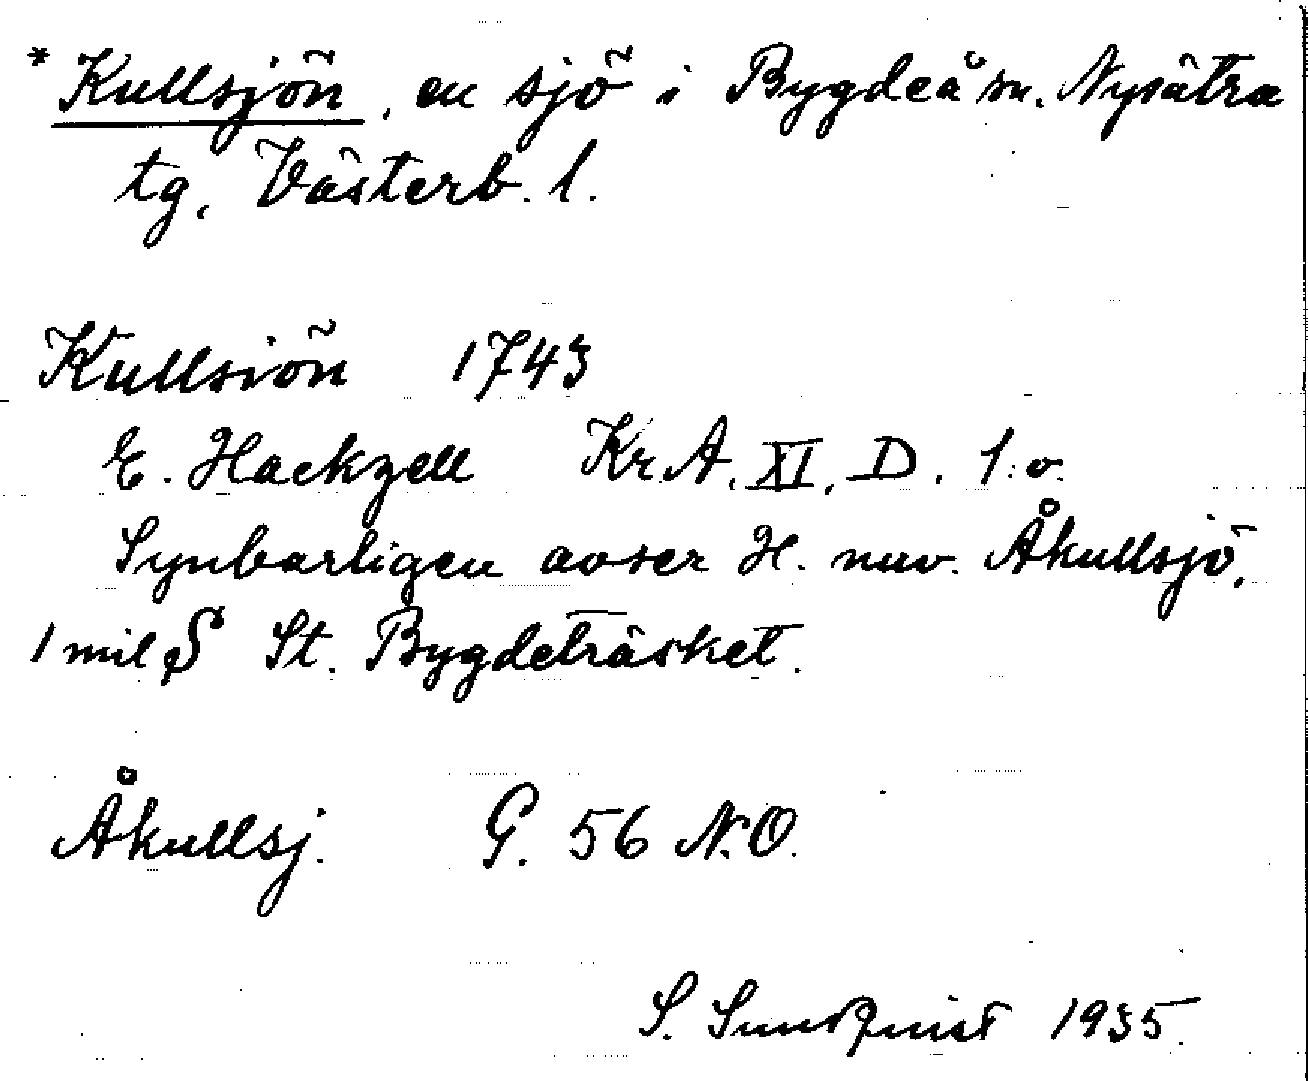 * Kullsjön, en sjö i Bygdeå sn. Nysätra
tg. Västerb. l.
Kullsiön 1743
E. Hackzell Kr.A. XI. D. 1:o.
Synbarligen avser H. nuv. Åkullsjö,
1 mil S St. Bygdeträsket.
Åkullsj. G. 56 N.O.
S. Sundquist 1935.